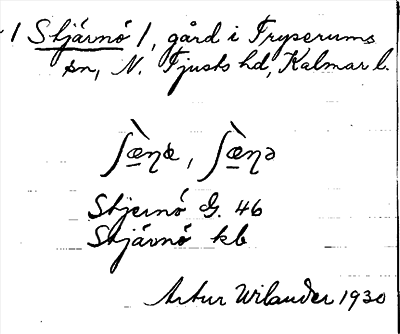 / Stjärnö /, gård i Tryserums
sn, N. Tjusts hd, Kalmar l.
Stjernö G. 46
Stjärnö kb
Artur Wilander 1930